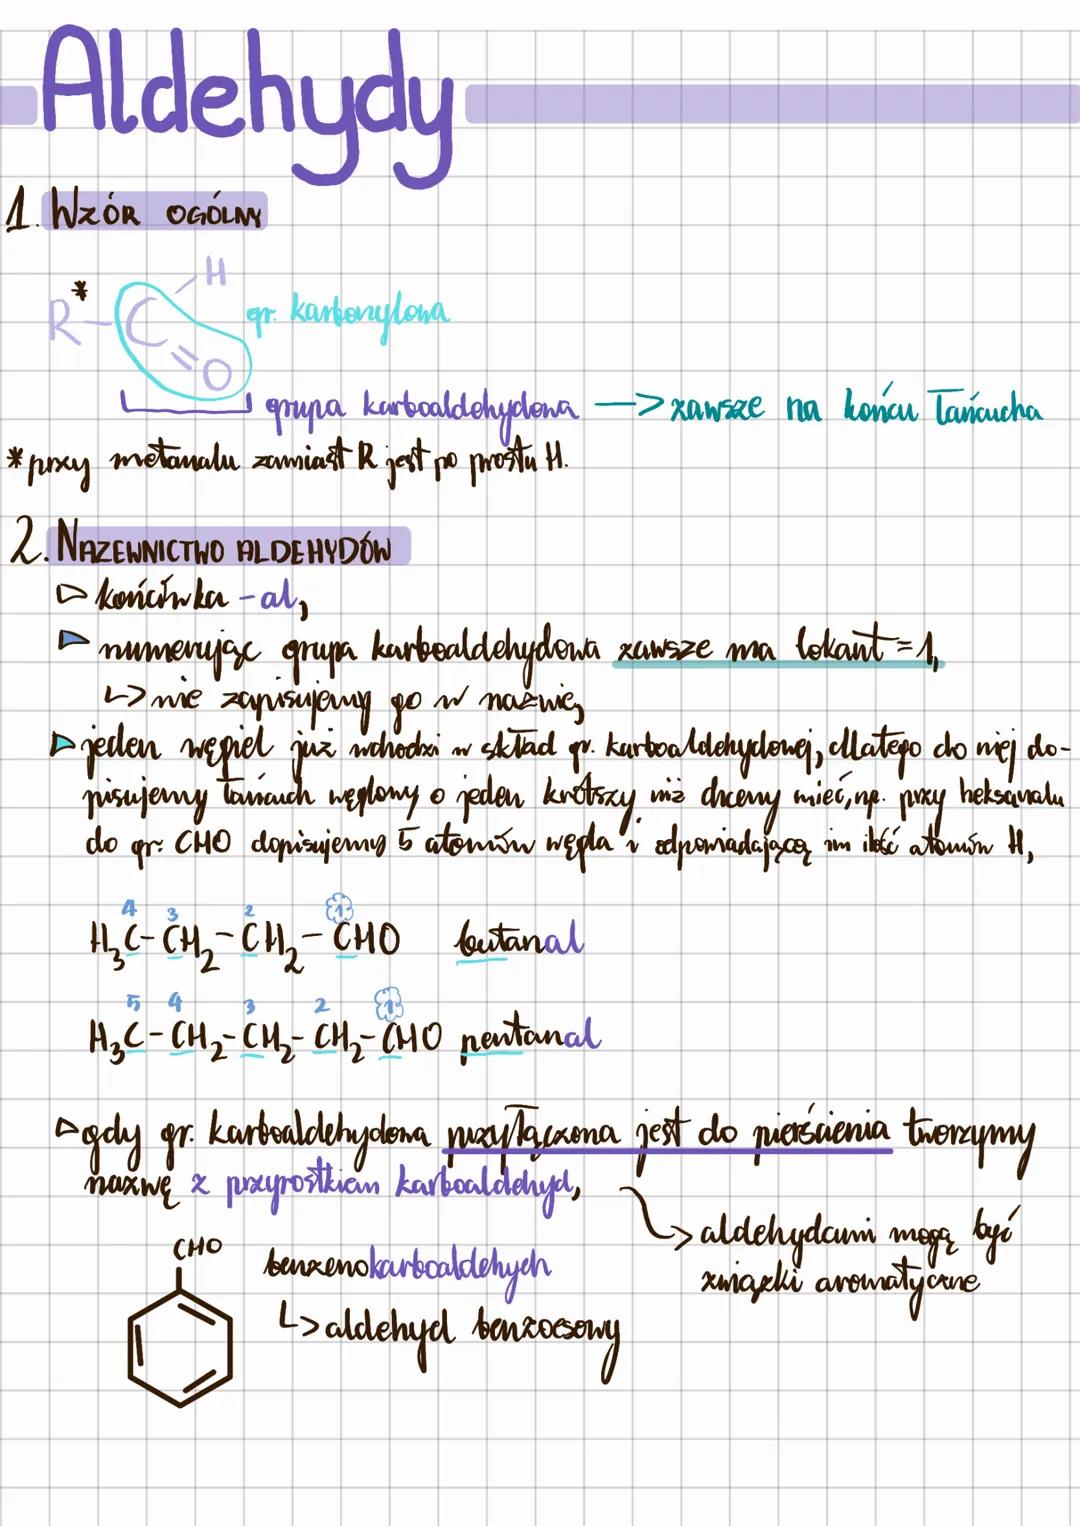 Aldehydy
1. WZÓR OGÓLNY
R* - C - H
= O
gr. karbonylowa
grupa karboaldehydowa —> zawsze na końcu łańcucha
* przy metanalu zamiast R jest po prostu H.
2. NAZEWNICTWO ALDEHYDÓW
▷ końcówka -al,
▷ numerując grupa karboaldehydowa zawsze ma lokant = 1,
↳ nie zapisujemy go w nazwie,
▷ jeden węgiel już wchodzi w skład gr. karboaldehydowej, dlatego do niej do-
pisujemy łańcuch węglowy o jeden krótszy niż chcemy mieć, np. przy heksanalu
do gr. CHO dopisujemy 5 atomów węgla i odpowiadającą im ilość atomów H,
4 3 2 1
H₃C-CH₂-CH₂-CHO butanal
5 4 3 2 1
H₃C-CH₂-CH₂-CH₂-CHO pentanal
▷ gdy gr. karboaldehydowa przyłączona jest do pierścienia tworzymy
nazwę z przyrostkiem karboaldehyd,
↳ aldehydami mogą być
związki aromatyczne
CHO
benzenokarboaldehyd
↳ aldehyd benzoesowy